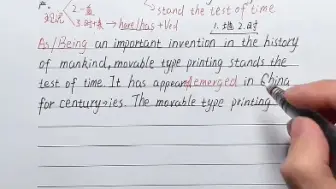 stand the test of time
2-直
5.时+ → have/has + Ved
1.地 2.时
As/Being an important invention in the history
of mankind, movable type printing stands the
test of time. It has appeared/emerged in China
for century→ies. The movable type printing